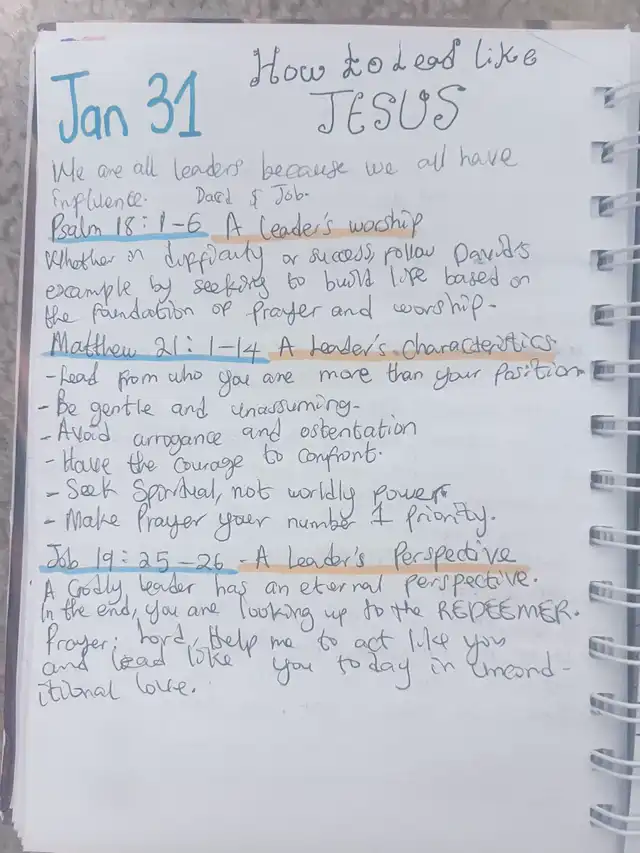 How to Lead like
Jan 31
JESUS
We are all leaders because we all have
influence. David & Job.
Psalm 18:1-6 A Leader's worship
Whether in difficulty or success, follow David's
example by seeking to build life based on
the foundation of Prayer and worship-
Matthew 21:1-14 A Leader's Characteristics
-Lead from who you are more than your position
- Be gentle and unassuming-
- Avoid arrogance and ostentation
- Have the courage to confront.
- Seek Spiritual, not worldly power.
- Make Prayer your number 1 priority.
Job 19:25-26 - A Leader's Perspective
A Godly leader has an eternal perspective.
In the end, you are looking up to the REDEEMER.
Prayer: Lord, Help me to act like you
and lead like you today in uncond-
itional love.